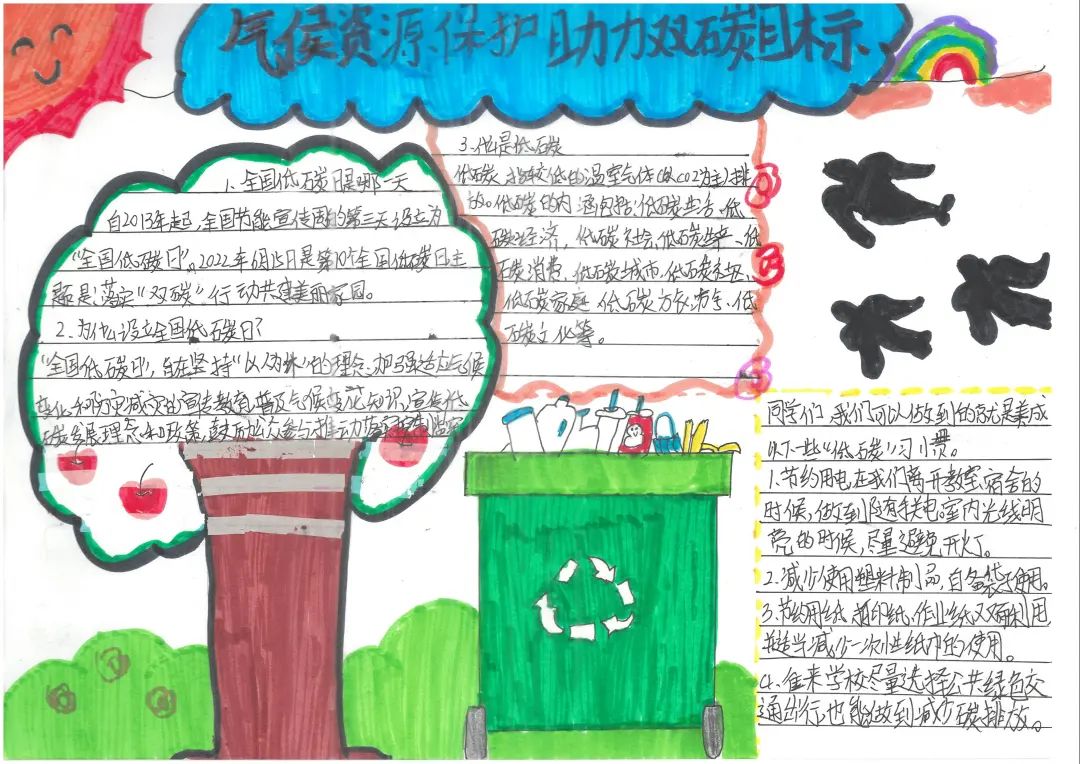 气侯资源保护助力双碳目标
1、全国低碳日是哪一天
自2013年起,全国节能宣传周的第三天设立为
“全国低碳日”。2022年6月15日是第10个全国低碳日主
题是:落实“双碳”行动共建美丽家园。
2.为什么设立全国低碳日?
“全国低碳日”,旨在坚持“以人为本”的理念、加强适应气候
变化和防灾减灾的宣传教育,普及气候变化知识,宣传低
碳发展理念和政策,鼓励公众参与,推动落实
3.什么是低碳
低碳,指较低的温室气体(以CO2为主)排
的。低碳的内涵包括:低碳生活、低
碳经济,低碳社会,低碳、低
碳消费、低碳城市,低碳社区、
低碳家庭 低碳、低
碳文化等。
同学们,我们可以做到的就是养成
以下一些“低碳”习惯。
1.节约用电在我们离开教室宿舍的
时候,做到随手关电。室内光线明
亮的时候,尽量避免开灯。
2.减少使用塑料制品,自备袋子使用。
3.节约用纸,打印纸、作业纸双面利用
适当减少一次性纸巾的使用。
4.往来学校尽量选择公共绿色交
通出行,也能做到减少碳排放。